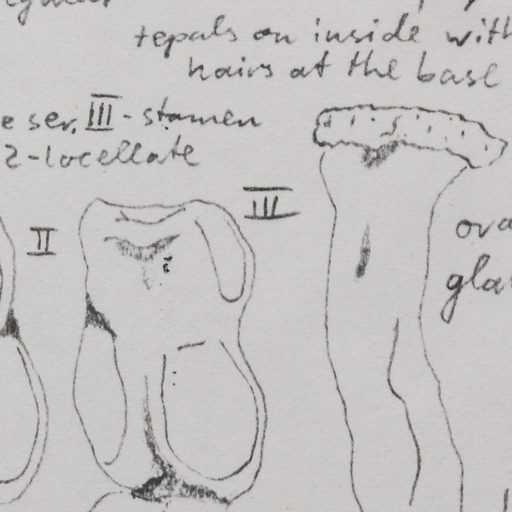 tepals on inside with
hairs at the base
ser. III - stamen
2-locellate
II
III